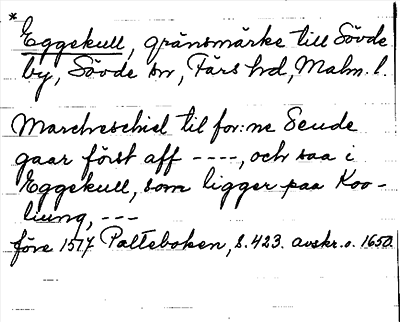 * Eggekull, gränsmärke till Sövde
by, Sövde sn, Färs hd, Malm. l.
Marcheschiel til for:ne Seude
gaar först aff ----, och saa i
Eggekull, som ligger paa Koo-
liung, ---
före 1517 Palteboken, s. 423. avskr. o. 1650.